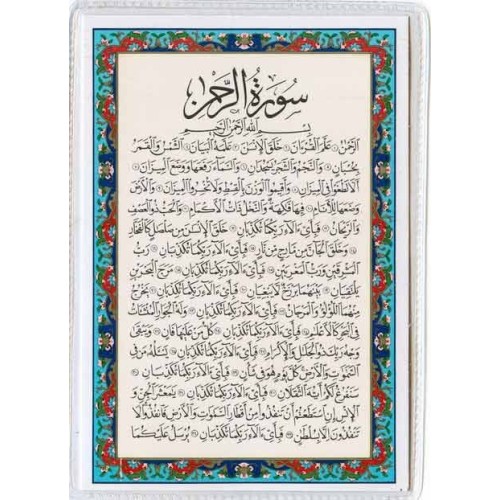 سُورَةُ الرَّحْمٰن
بِسْمِ اللَّهِ الرَّحْمٰنِ الرَّحِيمِ
الرَّحْمٰنُ عَلَّمَ الْقُرْآنَ خَلَقَ الْإِنْسٰنَ عَلَّمَهُ الْبَيَانَ الشَّمْسُ وَالْقَمَرُ
بِحُسْبَانٍ وَالنَّجْمُ وَالشَّجَرُ يَسْجُدَانِ وَالسَّمَاءَ رَفَعَهَا وَوَضَعَ الْمِيزَانَ
أَلَّا تَطْغَوْا فِي الْمِيزَانِ وَأَقِيمُوا الْوَزْنَ بِالْقِسْطِ وَلَا تُخْسِرُوا الْمِيزَانَ وَالْأَرْضَ
وَضَعَهَا لِلْأَنَامِ فِيهَا فَاكِهَةٌ وَالنَّخْلُ ذَاتُ الْأَكْمَامِ وَالْحَبُّ ذُو الْعَصْفِ
وَالرَّيْحَانُ فَبِأَيِّ ءَالَاءِ رَبِّكُمَا تُكَذِّبَانِ خَلَقَ الْإِنْسٰنَ مِنْ صَلْصَالٍ كَالْفَخَّارِ
وَخَلَقَ الْجَانَّ مِنْ مَارِجٍ مِنْ نَارٍ فَبِأَيِّ ءَالَاءِ رَبِّكُمَا تُكَذِّبَانِ رَبُّ
الْمَشْرِقَيْنِ وَرَبُّ الْمَغْرِبَيْنِ فَبِأَيِّ ءَالَاءِ رَبِّكُمَا تُكَذِّبَانِ مَرَجَ الْبَحْرَيْنِ
يَلْتَقِيَانِ بَيْنَهُمَا بَرْزَخٌ لَا يَبْغِيَانِ فَبِأَيِّ ءَالَاءِ رَبِّكُمَا تُكَذِّبَانِ يَخْرُجُ
مِنْهُمَا اللُّؤْلُؤُ وَالْمَرْجَانُ فَبِأَيِّ ءَالَاءِ رَبِّكُمَا تُكَذِّبَانِ وَلَهُ الْجَوَارِ الْمُنْشَئَاتُ
فِي الْبَحْرِ كَالْأَعْلَامِ فَبِأَيِّ ءَالَاءِ رَبِّكُمَا تُكَذِّبَانِ كُلُّ مَنْ عَلَيْهَا فَانٍ وَيَبْقَى
وَجْهُ رَبِّكَ ذُو الْجَلَالِ وَالْإِكْرَامِ فَبِأَيِّ ءَالَاءِ رَبِّكُمَا تُكَذِّبَانِ يَسْئَلُهُ مَنْ فِي
السَّمٰوَاتِ وَالْأَرْضِ كُلَّ يَوْمٍ هُوَ فِي شَأْنٍ فَبِأَيِّ ءَالَاءِ رَبِّكُمَا تُكَذِّبَانِ
سَنَفْرُغُ لَكُمْ أَيُّهَ الثَّقَلَانِ فَبِأَيِّ ءَالَاءِ رَبِّكُمَا تُكَذِّبَانِ يَٰمَعْشَرَ الْجِنِّ وَ
الْإِنْسِ إِنِ اسْتَطَعْتُمْ أَنْ تَنْفُذُوا مِنْ أَقْطَارِ السَّمٰوَاتِ وَالْأَرْضِ فَانْفُذُوا لَا
تَنْفُذُونَ إِلَّا بِسُلْطَٰنٍ فَبِأَيِّ ءَالَاءِ رَبِّكُمَا تُكَذِّبَانِ يُرْسَلُ عَلَيْكُمَا